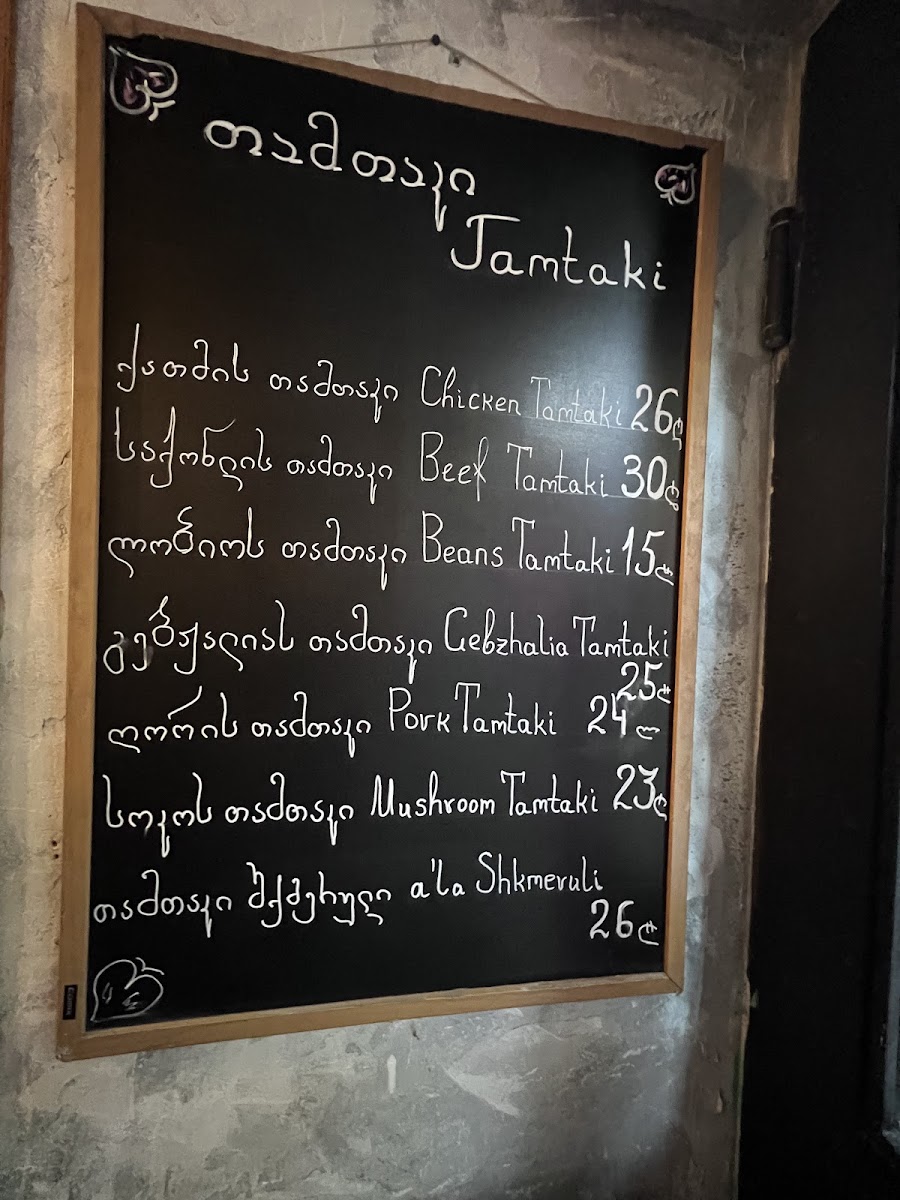 თამთაკი
Tamtaki
ქათმის თამთაკი Chicken Tamtaki 26ლ
საქონლის თამთაკი Beef Tamtaki 30ლ
ლობიოს თამთაკი Beans Tamtaki 15ლ
გებჟალიას თამთაკი Gebzhalia Tamtaki
25ლ
ღორის თამთაკი Pork Tamtaki 24ლ
სოკოს თამთაკი Mushroom Tamtaki 23ლ
თამთაკი შქმერული a'la Shkmeruli
26ლ